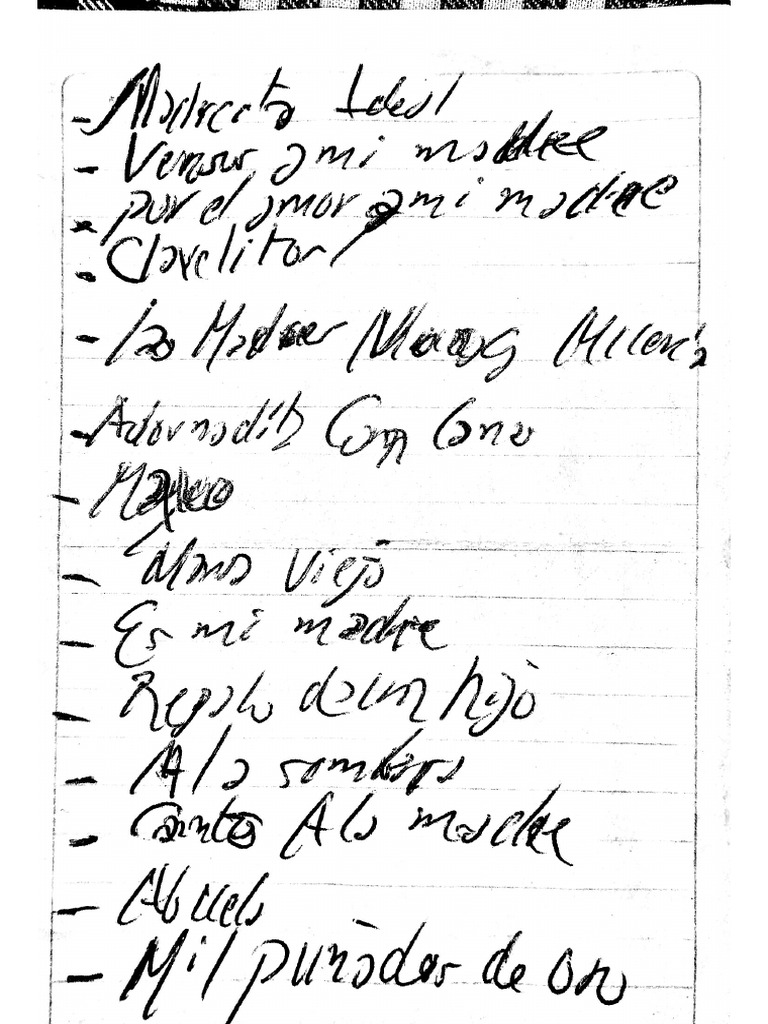 - Madrecita Ideal
- Versos a mi madre
- por el amor a mi madre
- Clavelitos
- las Madres
- Adornadita Con Canas
-
- Mano Vieja
- Es mi madre
- Regalo de un hijo
- A la sombra
- Canto A la madre
- Abuela
- Mil puñados de oro